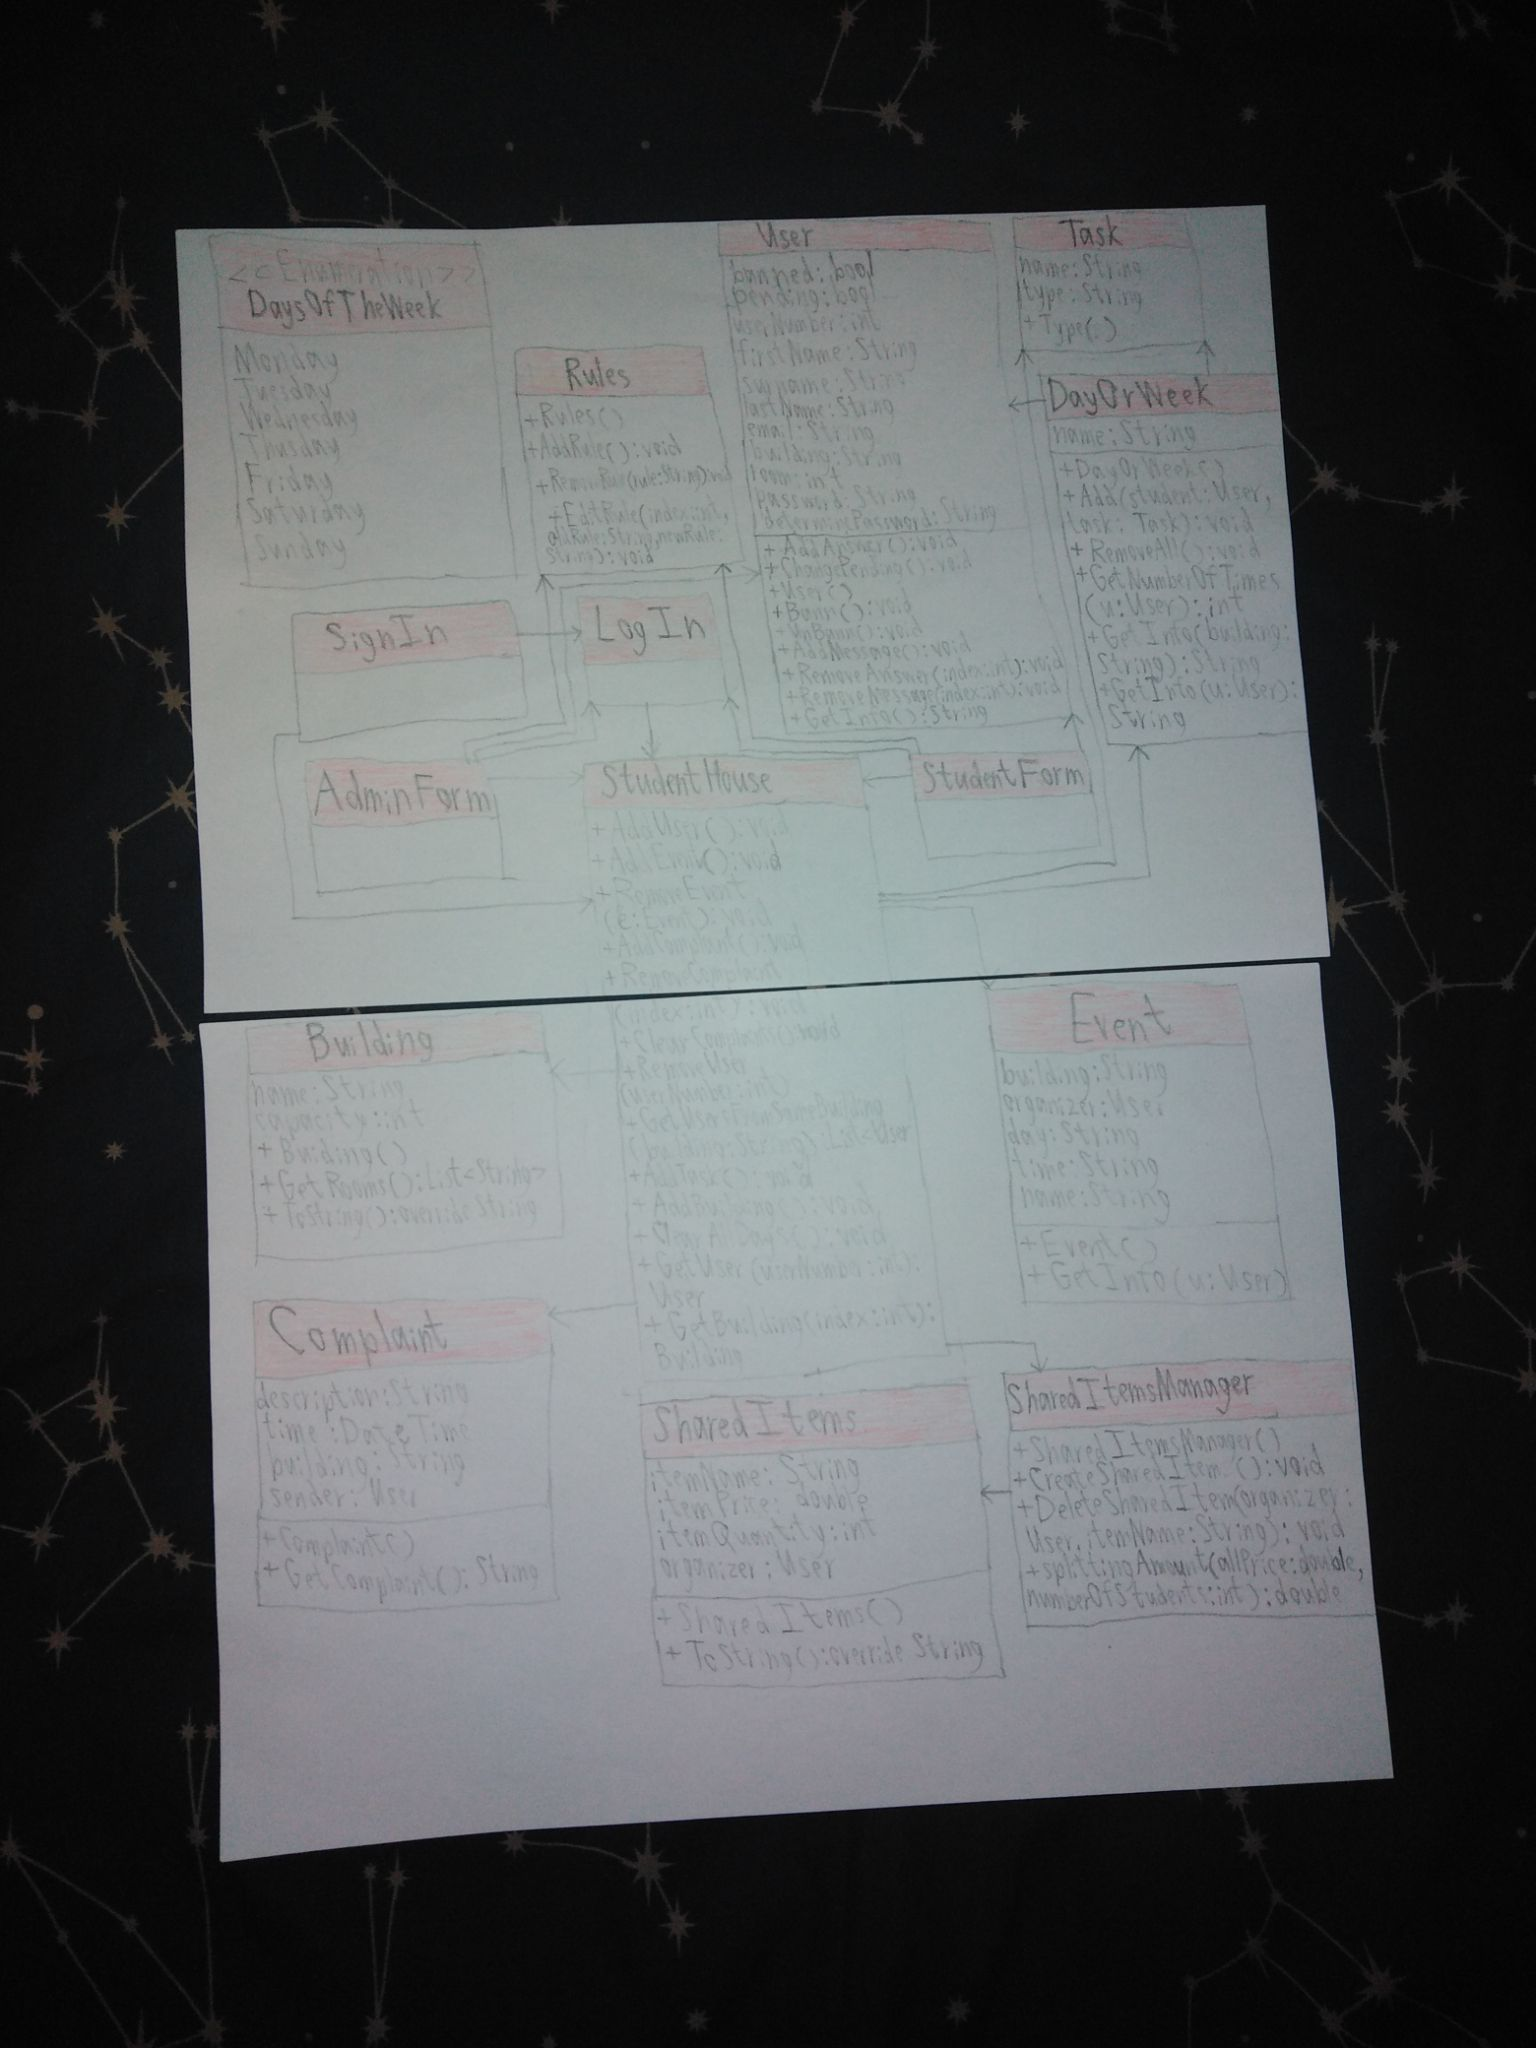 <<Enumeration>>
DaysOfTheWeek
Monday
Tuesday
Wednesday
Thursday
Friday
Saturday
Sunday
Rules
+Rules()
+AddRule():void
+RemoveRule(rule:String):void
+EditRule(index:int,
oldRule:String,newRule:
String):void
User
banned:bool
pending:bool
userNumber:int
firstName:String
surname:String
lastName:String
email:String
building:String
room:int
password:String
/determinePassword:String
+AddAnswer():void
+ChangePending():void
+User()
+Bann():void
+UnBann():void
+AddMessage():void
+RemoveAnswer(index:int):void
+RemoveMessage(index:int):void
+GetInfo():String
Task
name:String
type:String
+Type()
DayOrWeek
name:String
+DayOrWeek()
+Add(student:User,
task:Task):void
+RemoveAll():void
+GetNumberOfTimes
(u:User):int
+GetInfo(building:
String):String
+GetInfo(u:User):
String
SignIn
LogIn
AdminForm
StudentHouse
+AddUser():void
+AddEvent():void
+RemoveEvent
(e:Event):void
+AddComplaint():void
+RemoveComplaint
(index:int):void
+ClearComplaints():void
+RemoveUser
(userNumber:int)
+GetUsersFromSameBuilding
(building:String):List<User
+AddTask():void
+AddBuilding():void
+ClearAllDays():void
+GetUser(userNumber:int):
User
+GetBuilding(index:int):
Building
StudentForm
Building
name:String
capacity:int
+Building()
+GetRooms():List<String>
+ToString():override String
Event
building:String
organizer:User
day:String
time:String
name:String
+Event()
+GetInfo(u:User)
Complaint
description:String
time:DateTime
building:String
sender:User
+Complaint()
+GetComplaint():String
SharedItems
itemName:String
itemPrice:double
itemQuantity:int
organizer:User
+SharedItems()
+ToString():override String
SharedItemsManager
+SharedItemsManager()
+CreateSharedItem():void
+DeleteSharedItem(organizer:
User,itemName:String):void
+splittingAmount(allPrice:double,
numberOfStudents:int):double